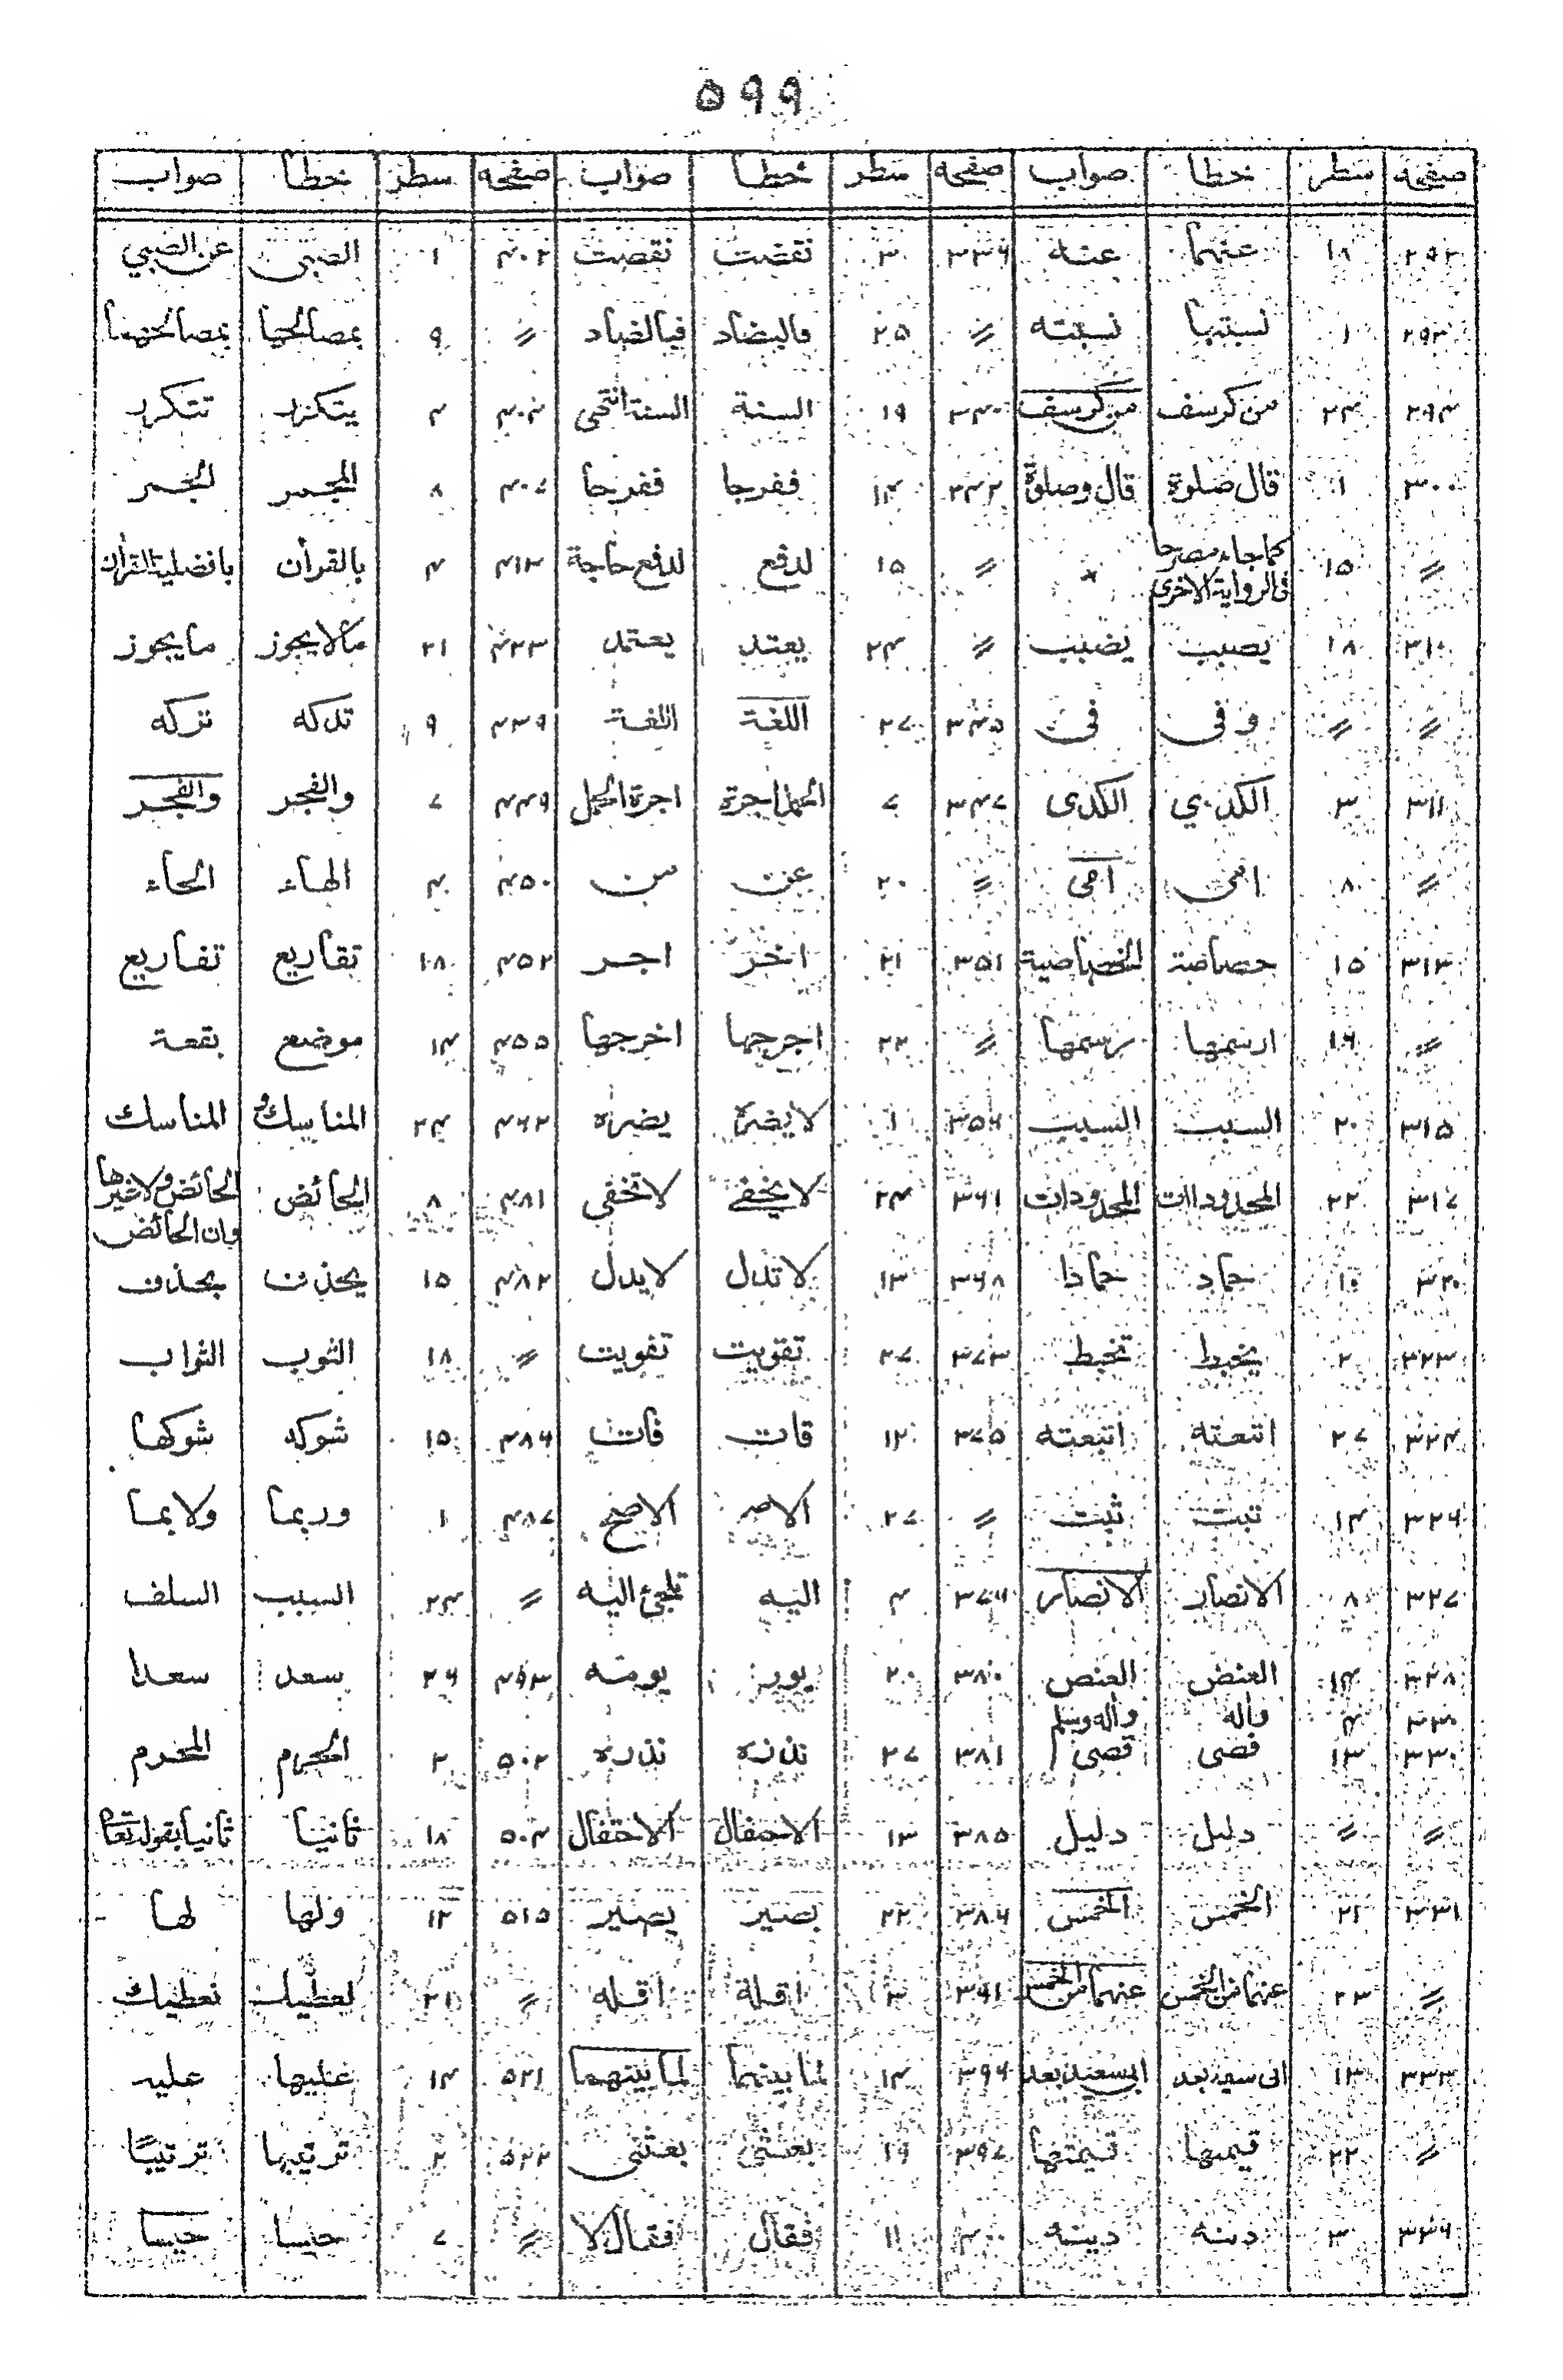 ۵۹۹
صفحه سطر خطا صواب صفحه سطر خطا صواب صفحه سطر خطا صواب
۲۹۲ ۱۸ عنهما عنه ۳۳۶ ۳ نقضت نقصت ۴۰۲ ۱ الصبی عن الصبي
۲۹۳ ۱ نسبتها نسبته 〃 ۲۵ فالبضاد فبالضاد 〃 ۹ بمصالحها بمصالحهما
۲۹۴ ۲۴ من كرسف من كرسف ۳۴۰ ۱۹ السنة السنة انتهى ۴۰۴ ۴ يتكرر تتكرر
۳۰۰ ۱ قال صلوة قال وصلوة ۳۴۲ ۱۴ ففرجا ففرحا ۴۰۷ ۸ المجمر الجمر
〃 ۱۵ كما جاء مصرحا فى الرواية الاخرى × 〃 ۱۵ لدفع لدفع حاجة ۴۱۳ ۴ بالقرأن بافضلية القرأن
۳۱۰ ۱۸ يصبب يضبب 〃 ۲۴ يعتد يعتمد ۴۲۳ ۲۱ مالا يجوز ما يجوز
〃 〃 وفى فى ۳۴۵ ۲۷ اللغة اللغة ۴۳۹ ۹ تدكه تركه
۳۱۱ ۳ الكذبي الكذى ۳۴۷ ۷ الحمل اجرة اجرة الحمل ۴۴۹ ۷ والفجر والفجر
〃 ۸ امى امى 〃 ۲۰ عن من ۴۵۰ ۴ الهاء الحاء
۳۱۳ ۱۵ حصاصة الخصاصية ۳۵۱ ۲۱ اخر اجر ۴۵۲ ۱۸ تقاريع تفاريع
〃 ۱۶ ارسمها برسمها 〃 ۲۲ اجرجها اخرجها ۴۵۵ ۱۴ موضع بقعة
۳۱۵ ۲۰ السبت السبب ۳۵۶ ۱ لا يضره يضره ۴۶۲ ۲۴ المناسك و المناسك
۳۱۷ ۲۲ المحدودات المحدودات ۳۶۱ ۲۴ لا يخفے لا تخفى ۴۸۱ ۸ الحائض الحائض ولا غيرها وان الحائض
۳۲۰ حماد حمادا ۳۶۸ ۱۳ لا تدل لا يدل ۴۸۲ ۱۵ يحذف بحذف
۳۲۳ ۲ يخبط تخبط ۳۷۳ ۲۷ تقويت تفويت 〃 ۱۸ الثوب الثواب
۳۲۴ ۲۷ اتبعته اتبعته ۳۷۵ ۱۲ قات فات ۴۸۶ ۱۵ شوكه شوكها
۳۲۶ ۱۴ تبت ثبت 〃 ۲۷ الاصر الاصح ۴۸۷ ۱ وربما ولا بما
۳۲۷ ۸ الانصار الانصار ۳۷۶ ۴ اليه تلجئ اليه 〃 ۲۴ السبب السلف
۳۲۸ ۱۴ العنض العنص ۳۸۰ ۲۰ يور يومه ۴۹۳ ۲۶ سعد سعدا
۳۳۰ ۴ واله واله وسلم
۳۳۰ ۱۳ قضى قصى ۳۸۱ ۲۷ نذره نذره ۵۰۲ ۲ المحرم المحرم
〃 〃 دليل دليل ۳۸۵ ۱۳ الاحتفال الاختفال ۵۰۴ ۱۸ ثانيا ثانيا بقوله تعا
۳۳۱ ۲۱ الخمس الخمس ۳۸۶ ۲۲ بصير يصير ۵۱۵ ۱۲ ولها لها
〃 ۲۳ عنهما من الخمس عنهما من الخمس ۳۹۱ ۳ اقلة اقله 〃 ۲۱ لعطيك نعطيك
۳۳۳ ۱۳ الى سعيد بعد ابى سعيد بعد ۳۹۶ ۱۴ لما بينهما لما بينهما ۵۲۱ ۱۴ عليها عليه
〃 ۲۲ قيمها قيمتها ۳۹۷ ۱۹ بعثنى بعثنى ۵۲۲ ۲ ترتيبها ترتيبًا
۳۳۶ ۳ دينه دينه ۴۰۰ ۱۱ فقال فقال لا 〃 ۷ حيسا حيسا